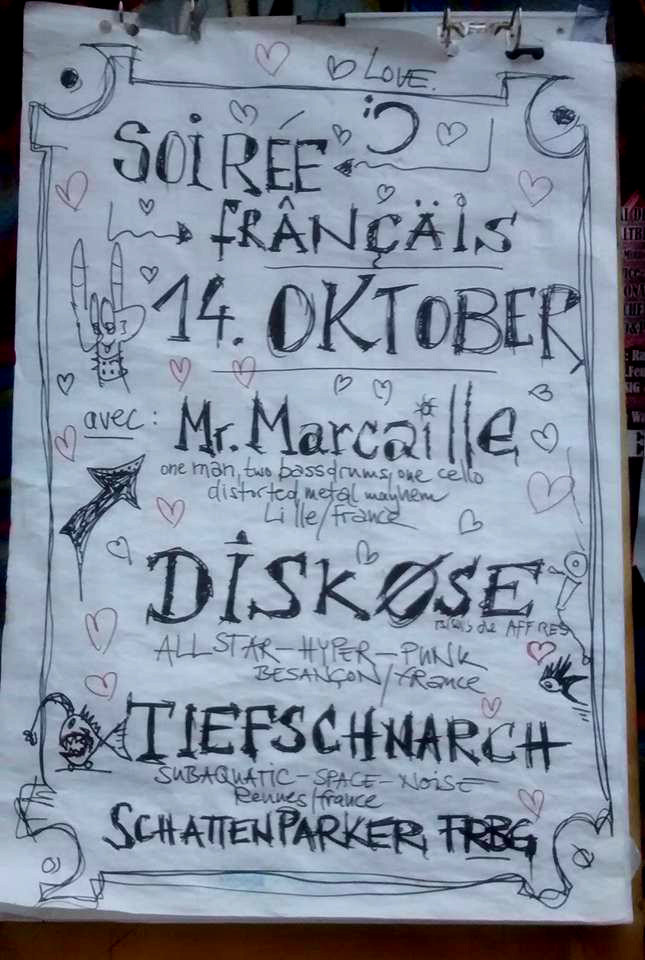 LOVE.
SOİRÉE
frÂNÇÄİS
14. OKTOBER
avec: Mr. Marcaille
one man, two bassdrums, one cello
distorted metal mayhem
Lille/france
DİSKØSE
AFFRES
ALLSTAR-HYPER-PUNK
BESANÇON/france
TIEFSCHNARCH
SUBAQUATIC-SPACE-NOISE
Rennes/france
SCHATTENPARKER, FRBG